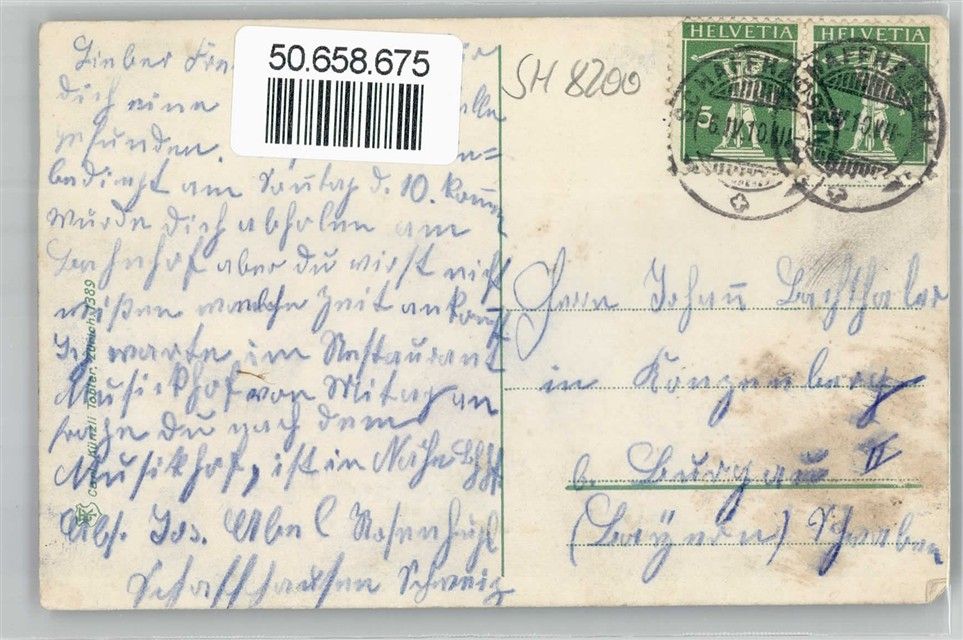 50.658.675
SH 8200
HELVETIA
HELVETIA
5
SCHAFFHAUSEN
SCHAFFHAUSEN
Lieber
dich eine
gefunden.
bedingt am Sontag d. 10.
würde dich abholen am
Bahnhof aber du wirst nicht
wißen welche Zeit ankomst
Ich warte im Restaurant
Musickhof von Mitag an
frage du nach dem
Musikhof, ist in Nähe Bhf
Abs. Jos. Abel
Schaffhausen Schweiz
Herrn Johan Bachthaler
in
b. Burgau II
(Bayern) Schwaben
Carl Künzli Tobler, Zürich. 1389